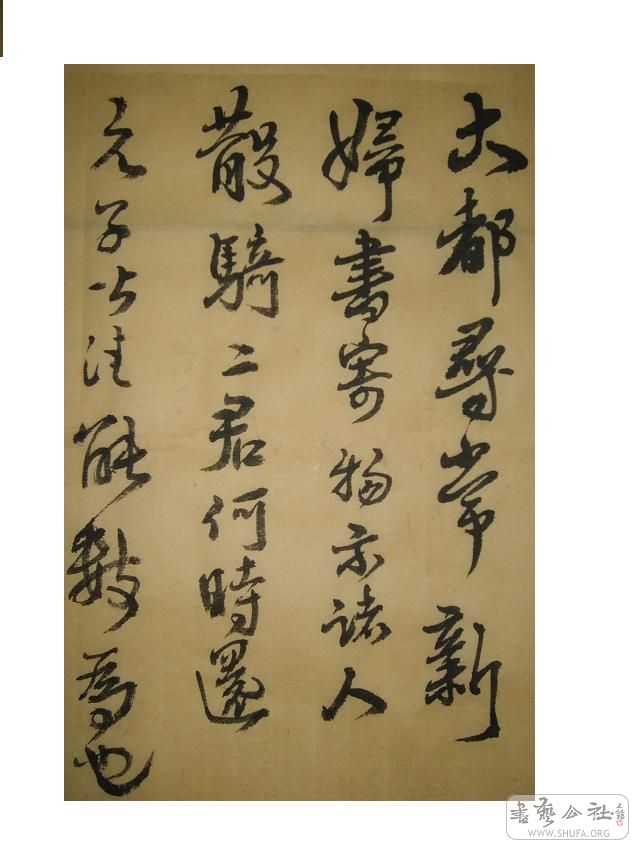 大都尋常新
婦書寄物示諸人
散騎二君何時還
元子皆往能數為也
書藝公社
WWW.SHUFA.ORG